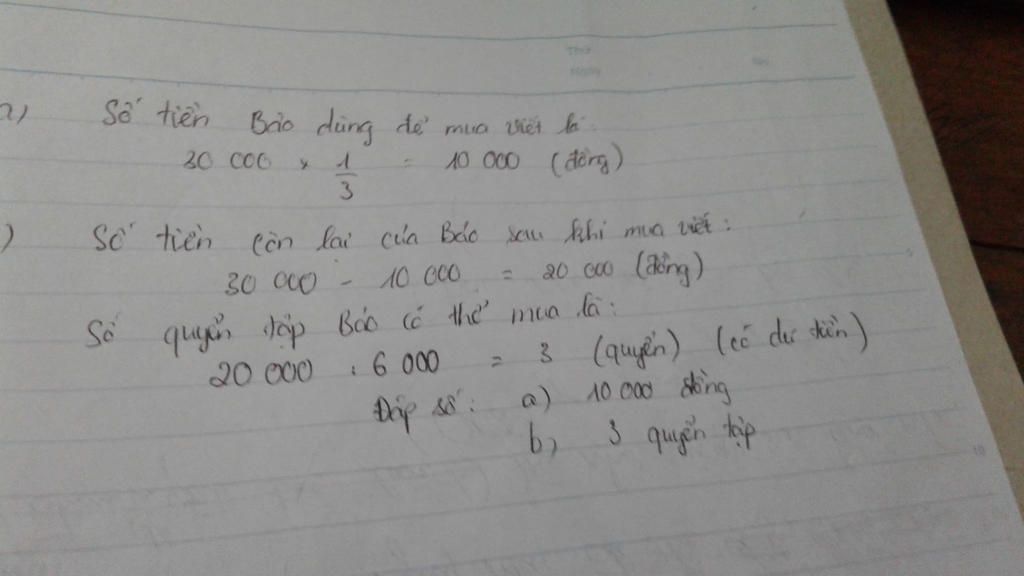 Thứ
Ngày
a) Số tiền Bảo dùng để mua viết là:
30 000 x 1/3 = 10 000 (đồng)
) Số tiền còn lại của Bảo sau khi mua viết:
30 000 - 10 000 = 20 000 (đồng)
Số quyển tập Bảo có thể mua là:
20 000 : 6 000 = 3 (quyển) (có dư tiền)
Đáp số: a) 10 000 đồng
b) 3 quyển tập